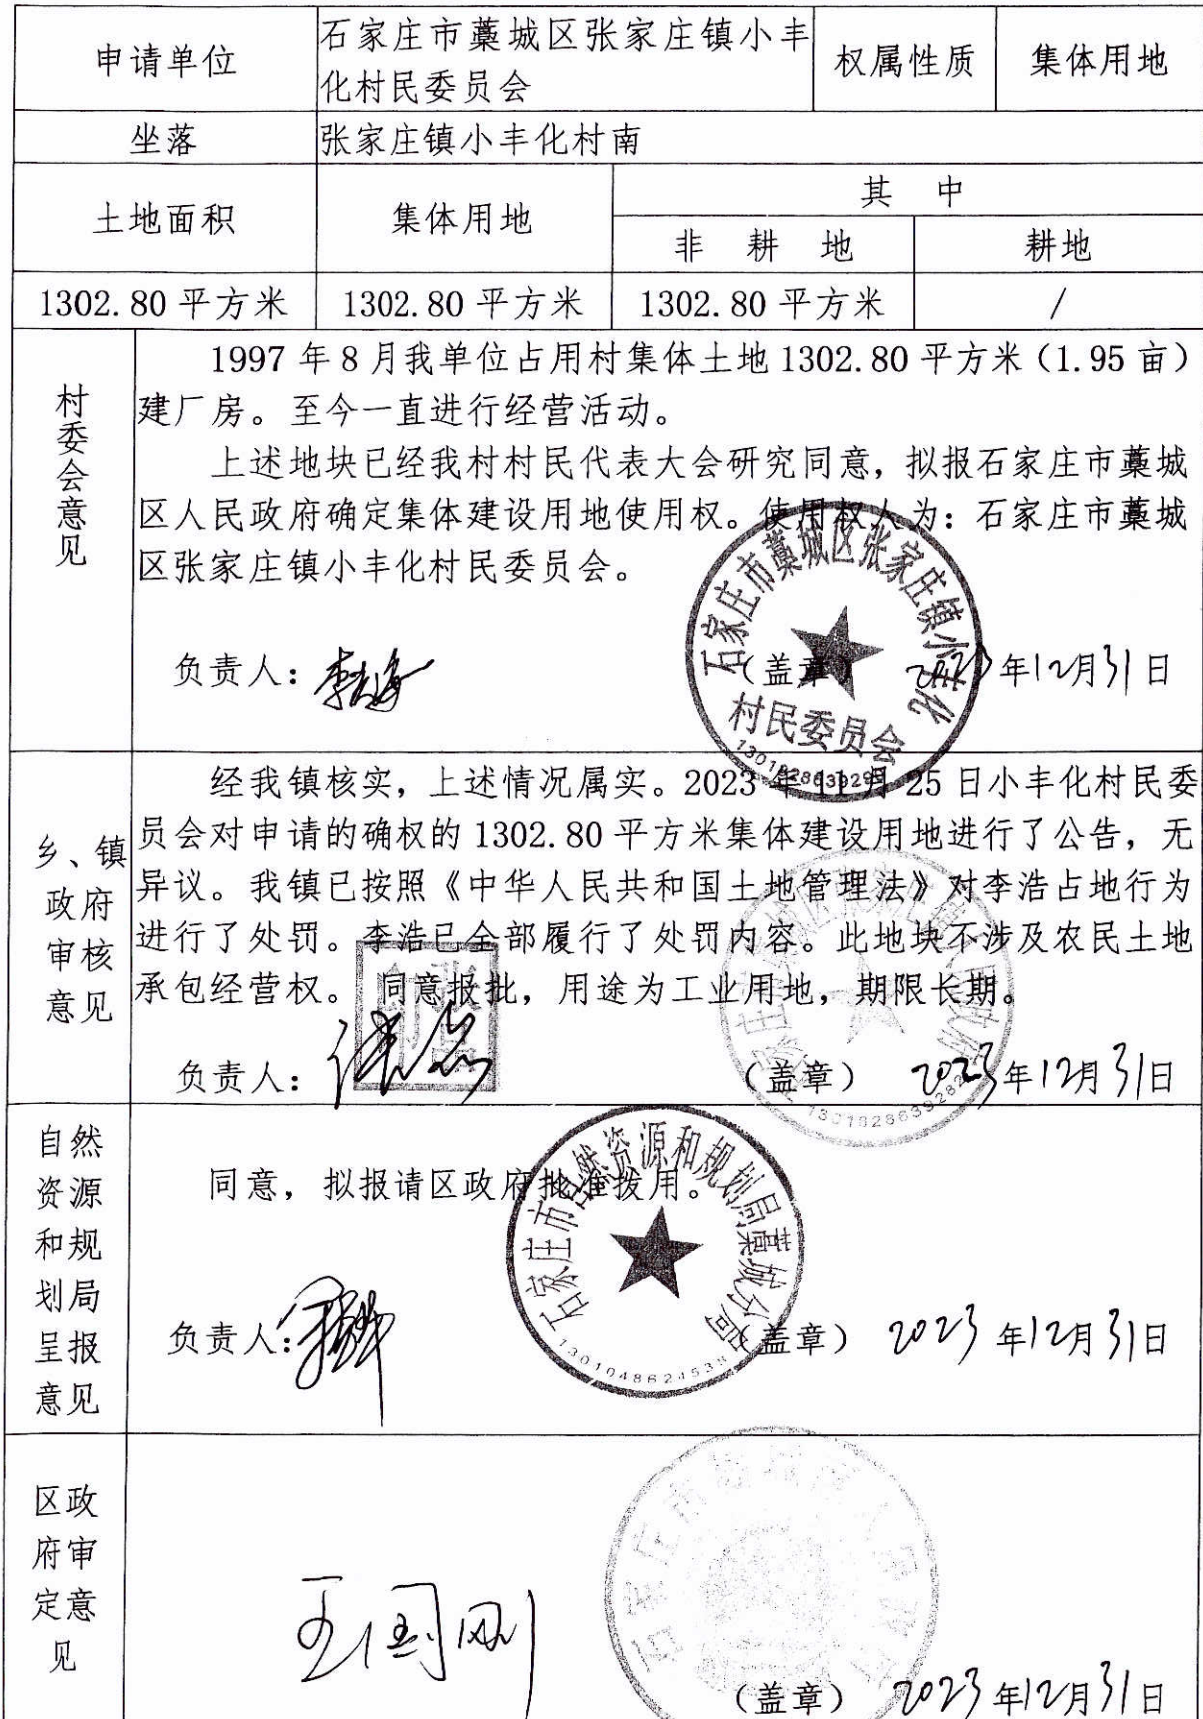 申请单位
石家庄市藁城区张家庄镇小丰
化村民委员会
权属性质
集体用地
坐落
张家庄镇小丰化村南
土地面积
集体用地
其 中
非 耕 地
耕地
1302.80 平方米
1302.80 平方米
1302.80 平方米
/
村委会意见
1997 年 8 月我单位占用村集体土地 1302.80 平方米（1.95 亩）
建厂房。至今一直进行经营活动。
上述地块已经我村村民代表大会研究同意，拟报石家庄市藁城
区人民政府确定集体建设用地使用权。使用权人为：石家庄市藁城
区张家庄镇小丰化村民委员会。
负责人：
（盖章） 2023年12月31日
石家庄市藁城区张家庄镇小丰化
村民委员会
乡、镇
政府
审核
意见
经我镇核实，上述情况属实。2023 年 11 月 25 日小丰化村民委
员会对申请的确权的 1302.80 平方米集体建设用地进行了公告，无
异议。我镇已按照《中华人民共和国土地管理法》对李浩占地行为
进行了处罚。李浩已全部履行了处罚内容。此地块不涉及农民土地
承包经营权。 同意报批，用途为工业用地，期限长期。
负责人：
（盖章） 2023年12月31日
自然
资源
和规
划局
呈报
意见
同意，拟报请区政府批准拨用。
石家庄市自然资源和规划局藁城分局
负责人：
（盖章） 2023年12月31日
区政
府审
定意
见
王国刚
（盖章） 2023年12月31日